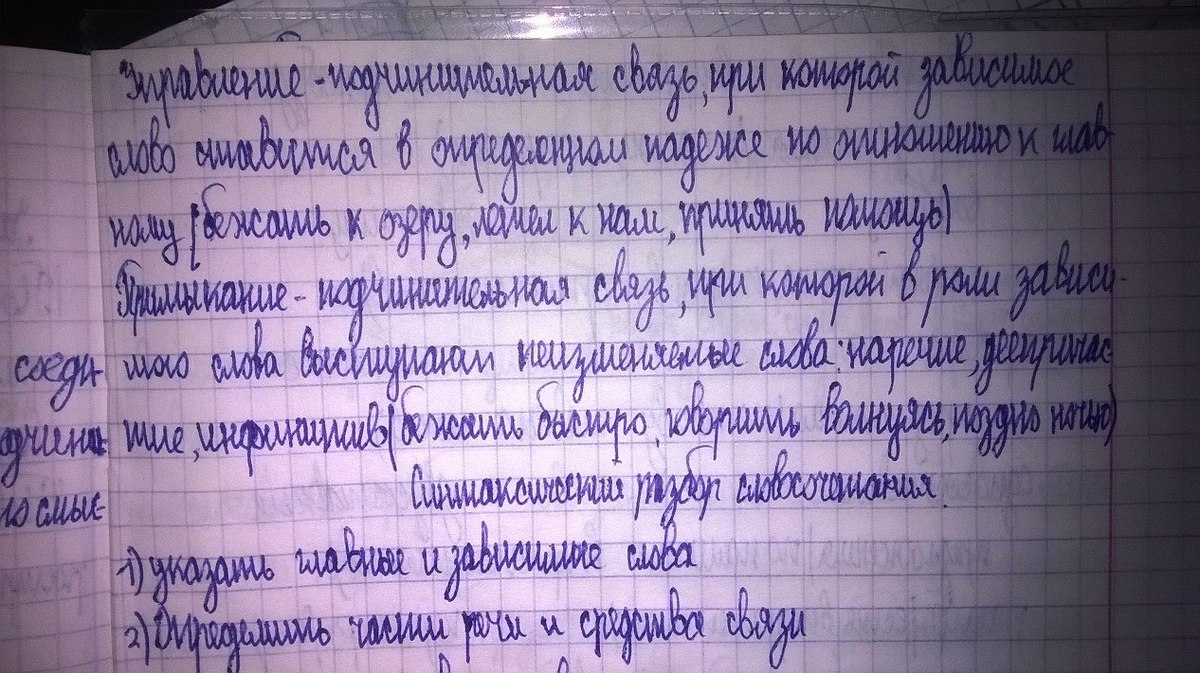 Управление - подчинительная связь, при которой зависимое
слово ставится в определенном падеже по отношению к глав-
ному (бежать к озеру, летел к нам, принять помощь)
Примыкание - подчинительная связь, при которой в роли зависи-
соеди- мого слова выступают неизменяемые слова: наречие, деепричас-
тие, инфинитив (бежать быстро, говорить волнуясь, поздно ночью)
по смыс- Синтаксический разбор словосочетания.
1) указать главные и зависимые слова
2) Определить части речи и средства связи